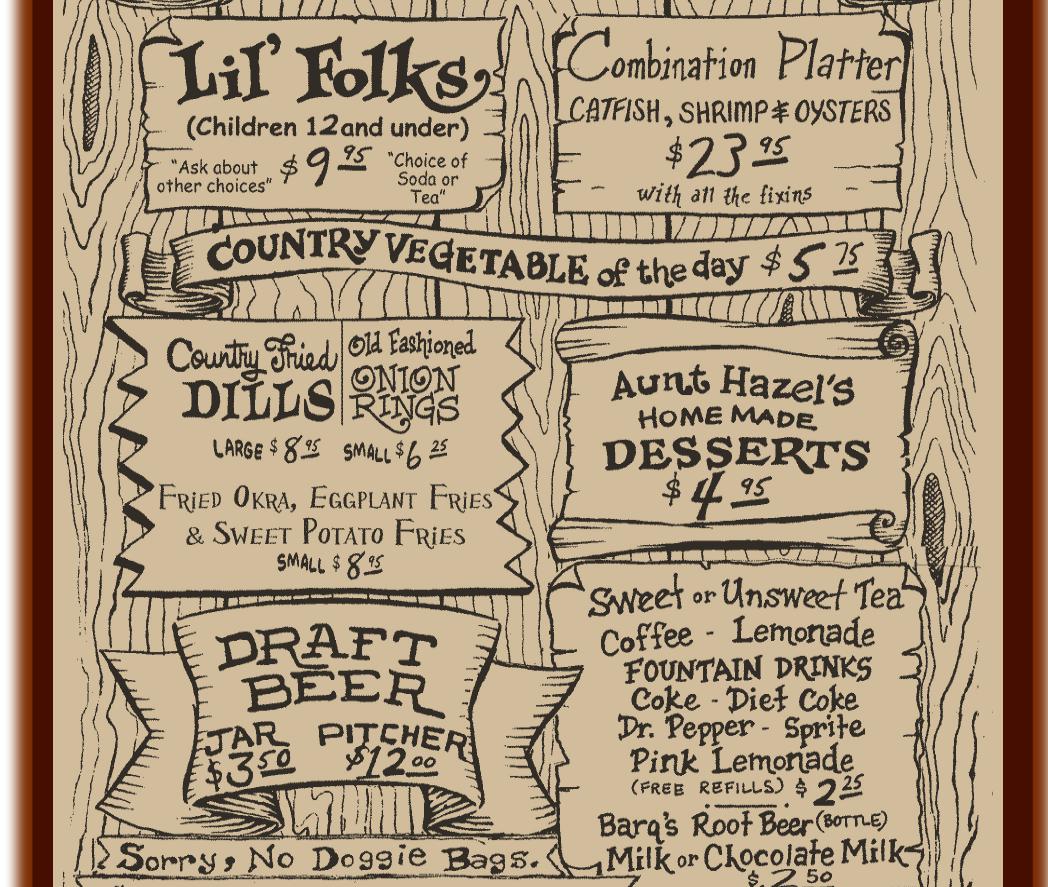 Lil' Folks
(Children 12 and under)
"Ask about other choices" $9.95 "Choice of Soda or Tea"
Combination Platter
CATFISH, SHRIMP & OYSTERS
$23.95
with all the fixins
COUNTRY VEGETABLE of the day $5.75
Country Fried
DILLS
Old Fashioned
ONION
RINGS
LARGE $8.95 SMALL $6.25
FRIED OKRA, EGGPLANT FRIES
& SWEET POTATO FRIES
SMALL $8.95
Aunt Hazel's
HOME MADE
DESSERTS
$4.95
DRAFT
BEER
JAR PITCHER
$3.50 $12.00
Sorry, No Doggie Bags.
Sweet or Unsweet Tea
Coffee - Lemonade
FOUNTAIN DRINKS
Coke - Diet Coke
Dr. Pepper - Sprite
Pink Lemonade
(FREE REFILLS) $2.25
Barq's Root Beer (BOTTLE)
Milk or Chocolate Milk
$2.50